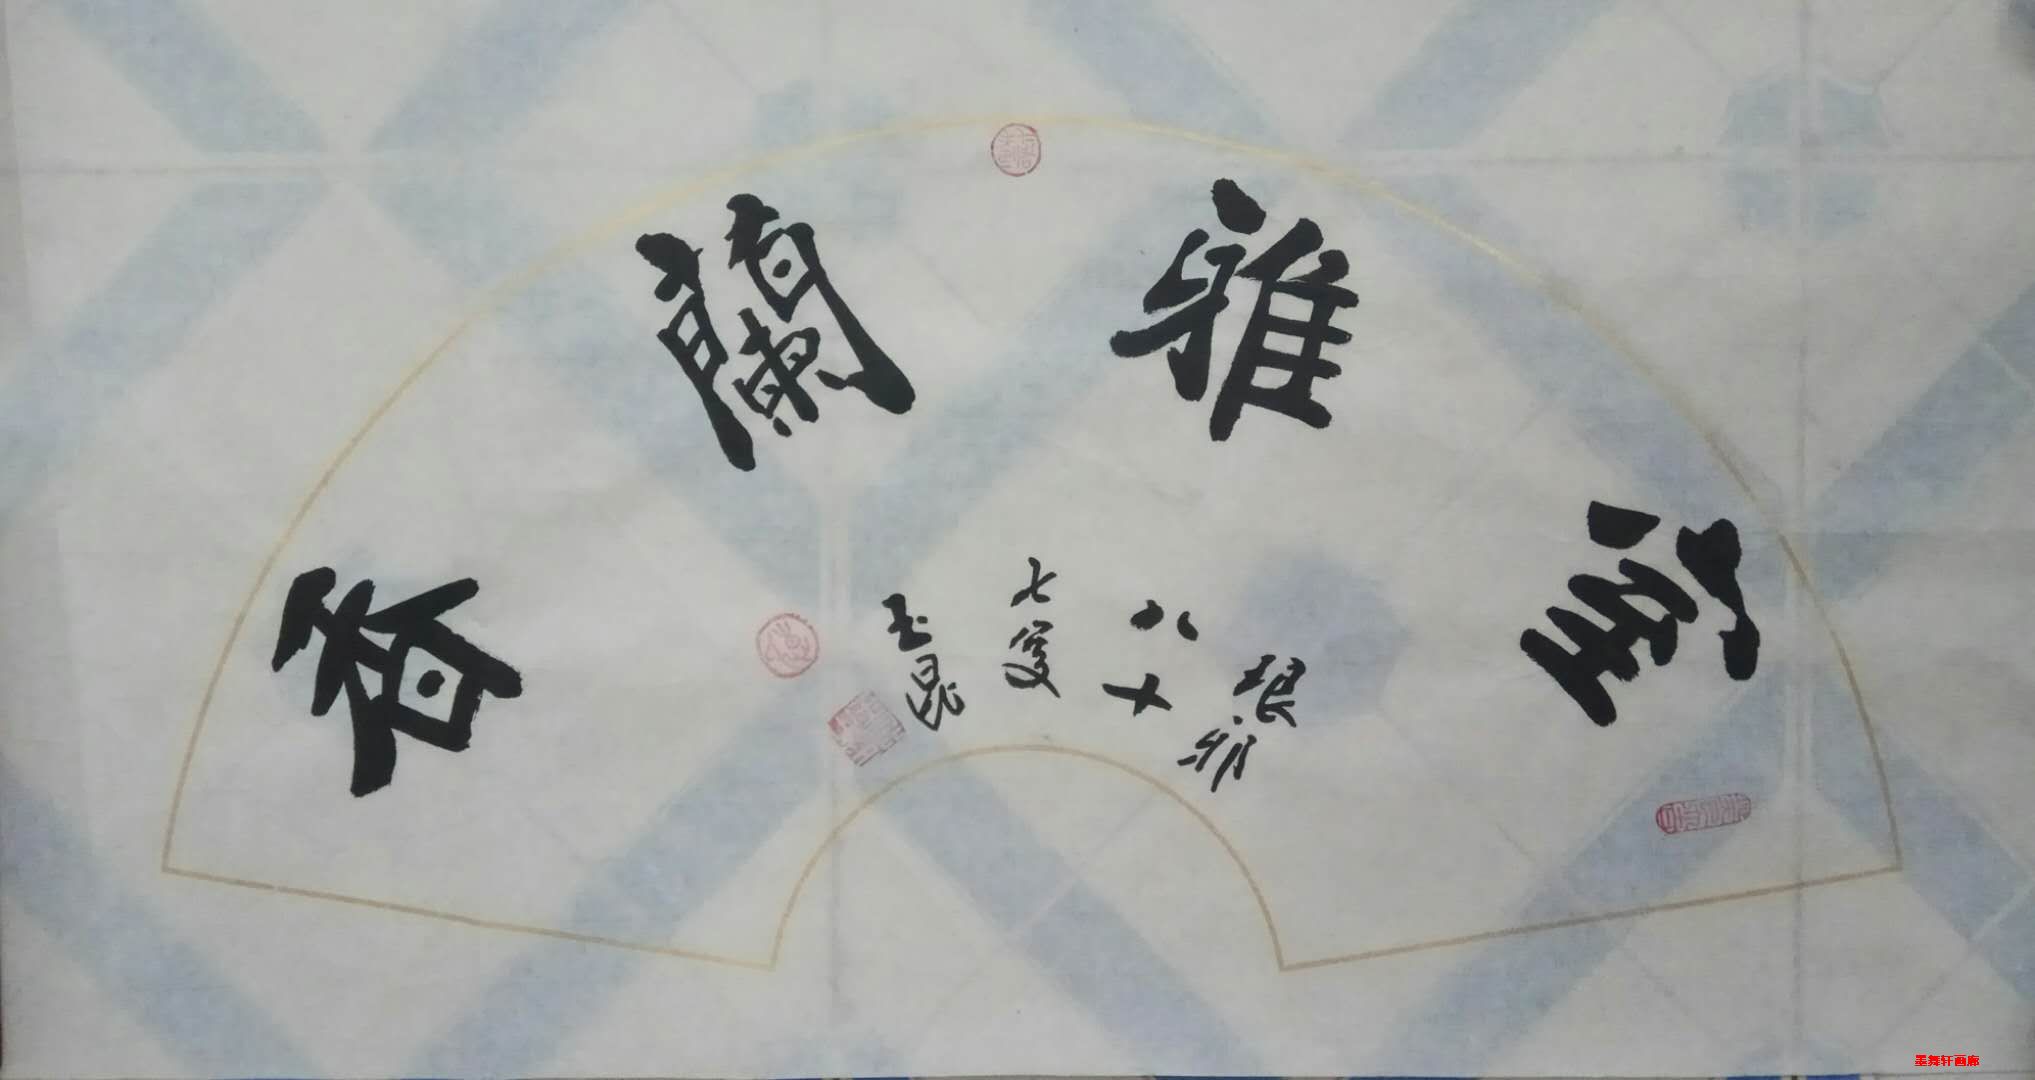 室雅蘭香
琅邪
八十
七叟
玉昆
墨舞轩画廊